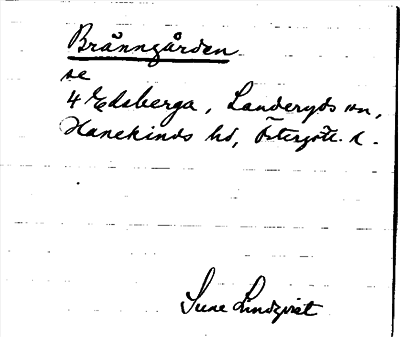 Brånngården
se
4 Edsberga, Landeryds sn,
Hanekinds hd, Östergötl. l.
Sune Lindqvist